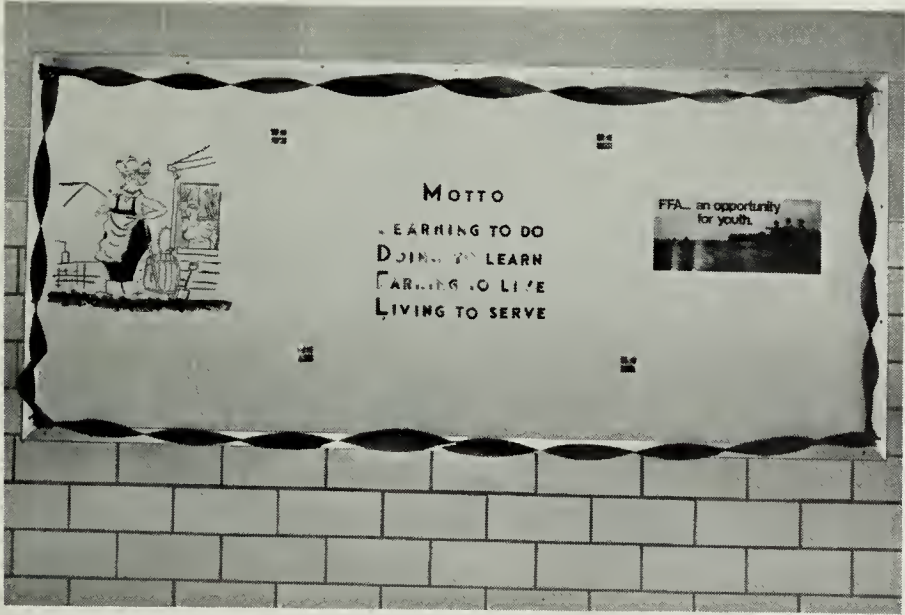 MOTTO
LEARNING TO DO
DOING TO LEARN
EARNING TO LIVE
LIVING TO SERVE
FFA... an opportunity
for youth.